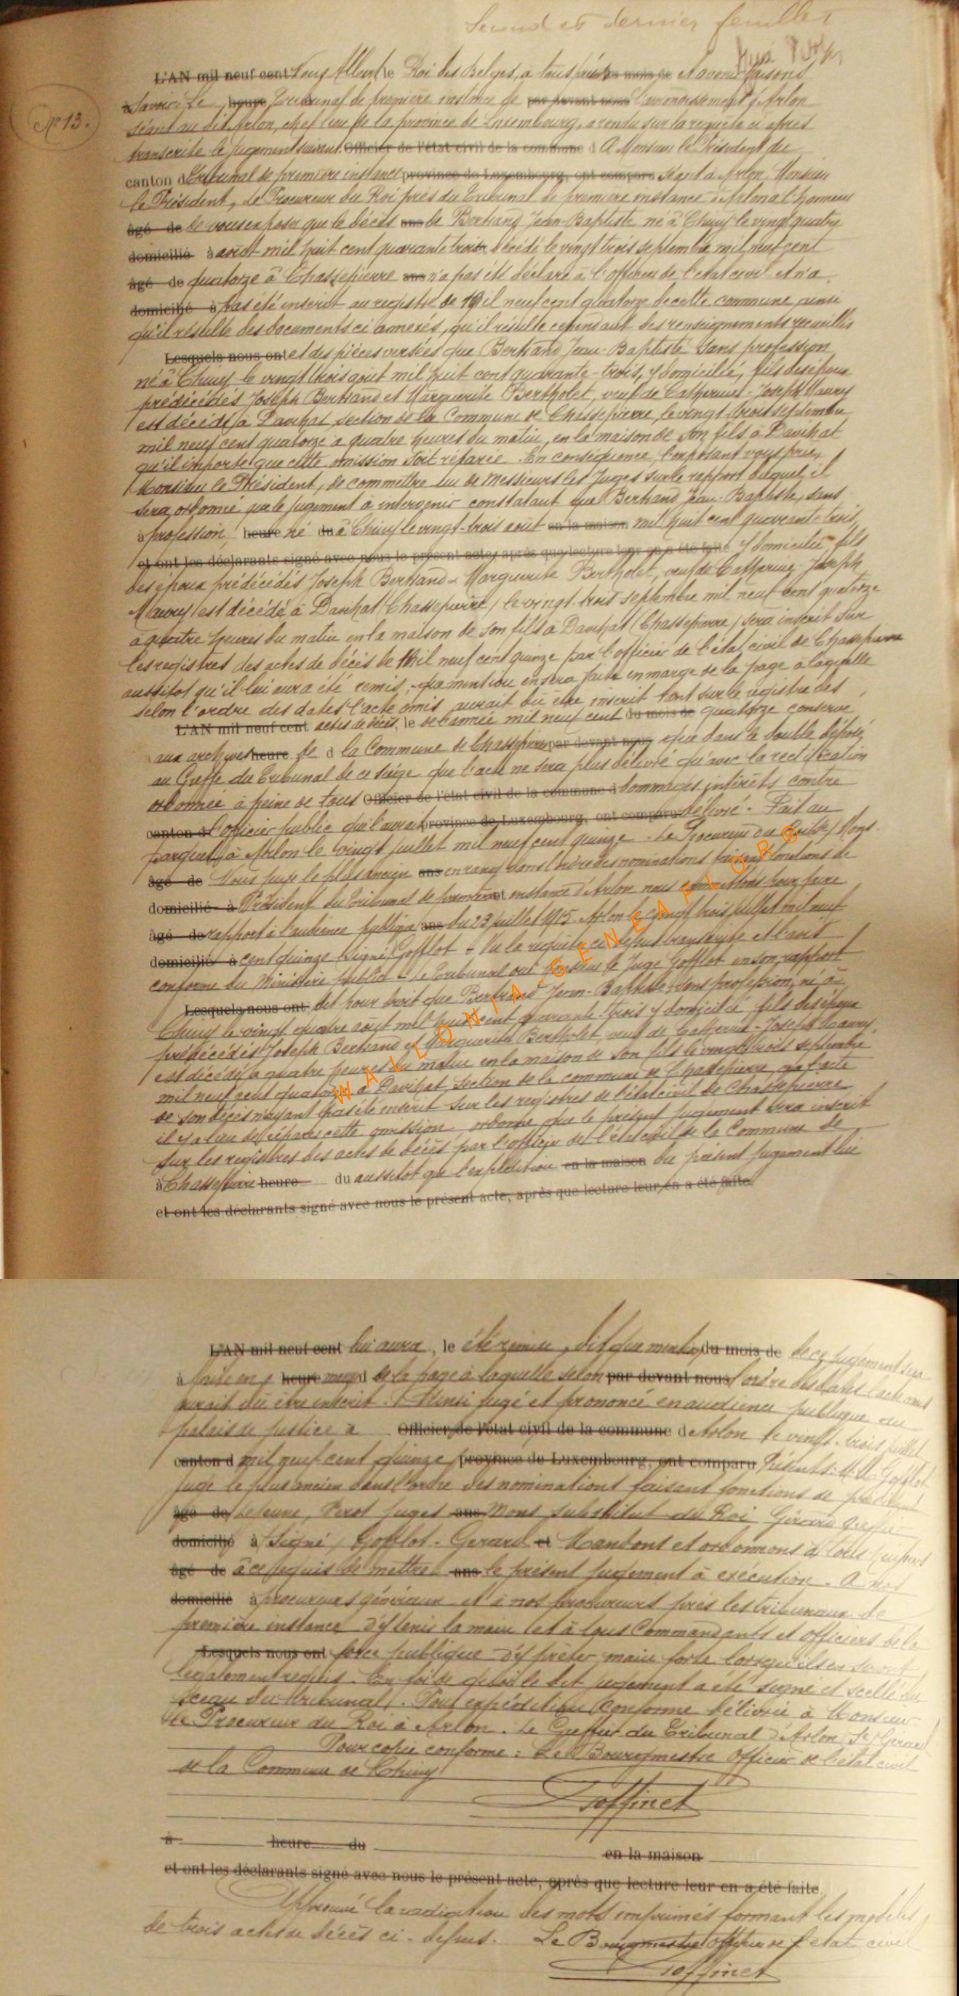 Second et dernier feuillet
N° 13.
L'AN mil neuf cent Nous Albert, le Roi des Belges, à tous présents et à venir faisons
à savoir: Le heure Tribunal de première instance de par devant nous l'arrondissement d'Arlon
séant au dit Arlon, chef lieu de la province de Luxembourg, a rendu sur la requête ci après
transcrite le jugement suivant. Officier de l'état civil de la commune d A Monsieur le Président du
canton d Tribunal de première instance province de Luxembourg, ont comparu séant à Arlon. Monsieur
le Président, Le Procureur du Roi près du Tribunal de première instance d'Arlon a l'honneur
âgé de de vous exposer que le décès ans de Bertrand Jean-Baptiste né à Chiny le vingt quatre
domicilié à août mil huit cent quarante trois, décédé le vingt trois septembre mil neuf cent
âgé de quatorze à Chassepierre ans n'a pas été déclaré à l'officier de l'état civil et n'a
domicilié à pas été inscrit au registre de 19 il neuf cent quatorze de cette commune, ainsi
qu'il résulte des documents ci annexés, qu'il résulte cependant des renseignements recueillis
Lesquels nous ont et des pièces versées que Bertrand Jean-Baptiste sans profession
né à Chiny le vingt trois août mil huit cent quarante-trois, y domicilié, fils des époux
prédécédés Joseph Bertrand et Marguerite Bertholet, veuf de Catherine-Joseph Maury
est décédé à Davihat, section de la Commune de Chassepierre, le vingt trois septembre
mil neuf cent quatorze à quatre heures du matin, en la maison de son fils à Davihat
qu'il importe que cette omission soit réparée. En conséquence, l'exposant vous prie,
Monsieur le Président, de commettre un de Messieurs les Juges sur le rapport duquel il
sera ordonné par le jugement à intervenir constatant que Bertrand Jean-Baptiste, sans
à profession, heure né du à Chiny le vingt-trois août en la maison mil huit cent quarante trois,
et ont les déclarants signé avec nous le présent acte, après que lecture leur en a été faite y domicilié, fils
des époux prédécédés Joseph Bertrand - Marguerite Bertholet, veuf de Catherine Joseph
Maury, est décédé à Davihat (Chassepierre) le vingt trois septembre mil neuf cent quatorze
à quatre heures du matin en la maison de son fils à Davihat (Chassepierre) sera inscrit sur
les registres des actes de décès de mil neuf cent quinze par l'officier de l'état civil de Chassepierre
aussitôt qu'il lui aura été remis, que mention en sera faite en marge de la page à laquelle
selon l'ordre des dates l'acte omis aurait dû être inscrit tant sur le registre des
L'AN mil neuf cent actes de décès, le de l'année mil neuf cent du mois de quatorze conservé
aux archives heure de d la Commune de Chassepierre par devant nous que dans le double déposé
au Greffe du Tribunal de ce siège que l'acte ne sera plus délivré qu'avec la rectification
ordonnée à peine de tous Officier de l'état civil de la commune d dommages intérêts contre
canton d l'officier public qui l'aurait province de Luxembourg, ont comparu délivré. Fait au
parquet, à Arlon le vingt juillet mil neuf cent quinze. Le Procureur du Roi
âgé de Nous juge le plus ancien ans en rang dans l'ordre des nominations faisant fonctions de
domicilié à Président du Tribunal de première et instance d'Arlon nous commettons pour faire
âgé de rapport à l'audience publique ans du 23 juillet 1915. Arlon le vingt trois juillet mil neuf
domicilié à cent quinze. Signé Gofflot - Vu la requête ci-dessus transcrite et l'avis
conforme du Ministère public - Le Tribunal ouï Monsieur le Juge Gofflot en son rapport
Lesquels nous ont dit pour droit que Bertrand Jean-Baptiste, sans profession, né à
Chiny le vingt quatre août mil huit cent quarante trois y domicilié, fils des époux
prédécédés Joseph Bertrand et Marguerite Bertholet, veuf de Catherine-Joseph Maury,
est décédé à quatre heures du matin en la maison de son fils le vingt trois septembre
mil neuf cent quatorze à Davihat section de la commune de Chassepierre, que l'acte
de son décès n'ayant pas été inscrit sur les registres de l'état civil de Chassepierre
il y a lieu de réparer cette omission ordonne que le présent jugement sera inscrit
sur les registres des actes de décès par l'officier de l'état civil de la Commune de
à Chassepierre heure du aussitôt que l'expédition en la maison du présent jugement lui
et ont les déclarants signé avec nous le présent acte, après que lecture leur en a été faite.
WALLONIA-GENEA.ORG
L'AN mil neuf cent lui aura, le été remise, dit que mention du mois de de ce jugement sera
à faite en heure marge d de la page à laquelle selon par devant nous l'ordre des dates l'acte omis
aurait dû être inscrit. Ainsi jugé et prononcé en audience publique au
palais de justice à Officier de l'état civil de la commune d Arlon le vingt-trois juillet
canton d mil neuf cent quinze, province de Luxembourg, ont comparu Présents: M.M. Gofflot
Juge le plus ancien dans l'ordre des nominations faisant fonctions de président
âgé de Lejeune, Perot juges ans Mons substitut du Roi Gérard greffier
domicilié à Signé, Gofflot - Gerard et Mandons et ordonnons à tous huissiers
âgé de à ce requis de mettre ans le présent jugement à exécution. A nos
domicilié à procureurs généraux et à nos procureurs près les tribunaux de
première instance d'y tenir la main et à tous Commandants et officiers de la
Lesquels nous ont force publique d'y prêter main forte lorsqu'ils en seront
légalement requis. En foi de quoi le dit jugement a été signé et scellé du
sceau du tribunal. Pour expédition conforme délivrée à Monsieur
le Procureur du Roi à Arlon. Le Greffier du Tribunal d'Arlon, Sé Gerard
Pour copie conforme: Le Bourgmestre officier de l'état civil
de la Commune de Chiny
Goffinet
à heure du en la maison
et ont les déclarants signé avec nous le présent acte, après que lecture leur en a été faite.
Approuvé la radiation des mots imprimés formant les modèles
de trois actes de décès ci-dessus. Le Bourgmestre officier de l'état civil
Goffinet